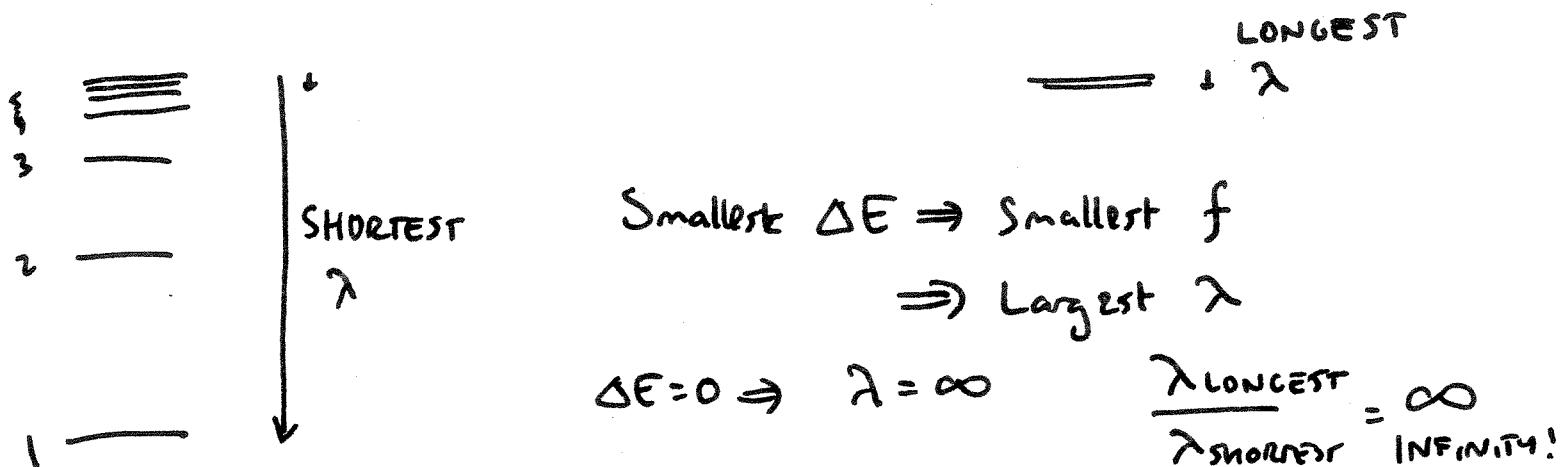 LONGEST
λ
3
2
1
SHORTEST
λ
Smallest ΔE ⇒ Smallest f
⇒ Largest λ
ΔE=0 ⇒ λ = ∞
λ LONGEST / λ SHORTEST = ∞
INFINITY!